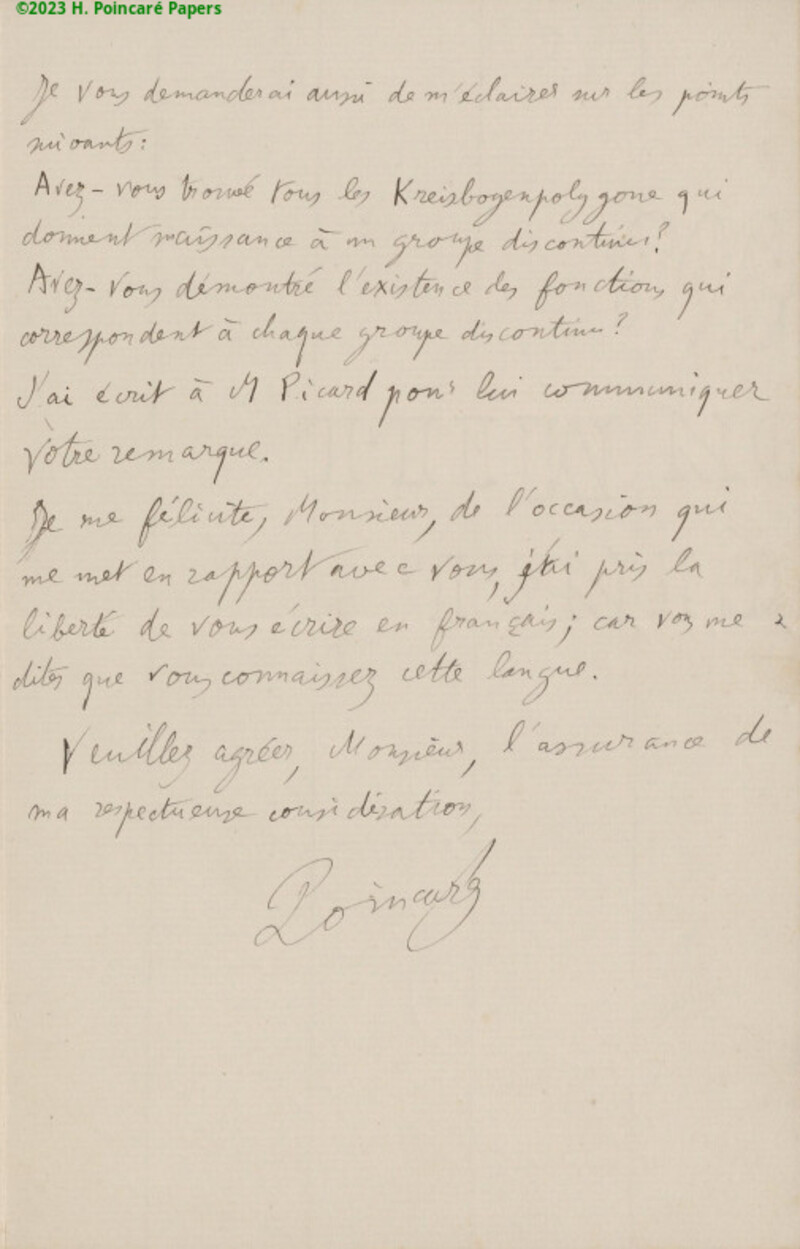 ©2023 H. Poincaré Papers
Je vous demanderai aussi de m'éclairer sur les points
suivants:
Avez-vous trouvé tous les Kreisbogenpolygone qui
donnent naissance à un groupe discontinu?
Avez-vous démontré l'existence des fonctions qui
correspondent à chaque groupe discontinu?
J'ai écrit à M Picard pour lui communiquer
votre remarque.
Je me félicite, Monsieur, de l'occasion qui
me met en rapport avec vous, j'ai pris la
liberté de vous écrire en français; car vous me
dites que vous connaissez cette langue.
Veuillez agréer, Monsieur, l'assurance de
ma respectueuse considération,
Poincaré